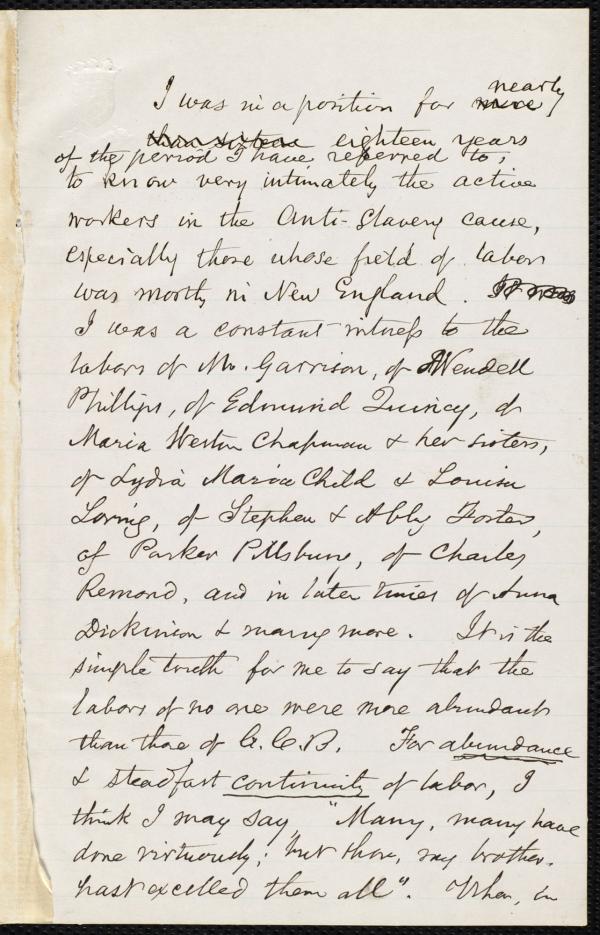 I was in a position for nearly
eighteen years
of the period I have referred to,
to know very intimately the active
workers in the Anti-Slavery cause,
especially those whose field of labor
was mostly in New England. It was
I was a constant witness to the
labors of Mr. Garrison, of Wendell
Phillips, of Edmund Quincy, of
Maria Weston Chapman & her sisters,
of Lydia Maria Child & Louisa
Loring, of Stephen & Abby Foster,
of Parker Pillsbury, of Charles
Remond, and in later times of Anna
Dickinson & many more. It is the
simple truth for me to say that the
labors of no one were more abundant
than those of C.C.B. For abundance
& steadfast continuity of labor, I
think I may say "Many, many have
done virtuously; but thou, my brother,
hast excelled them all". When, in